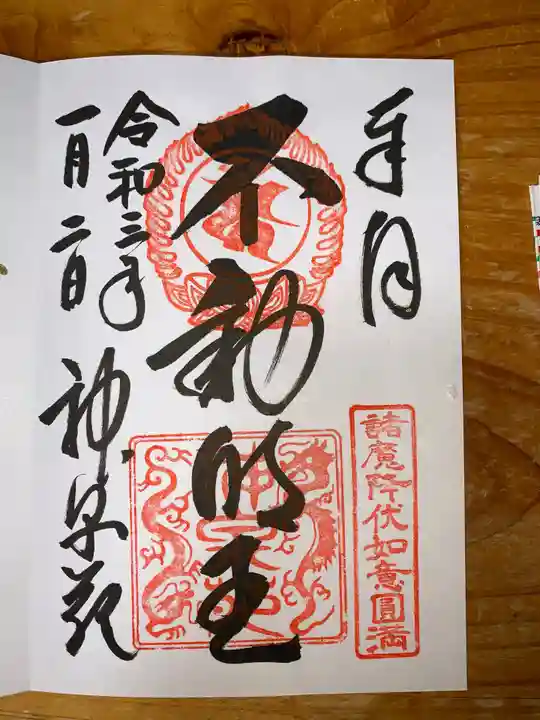 奉拝
諸魔降伏如意圓満
不動明王
令和三年
一月二日
神泉苑